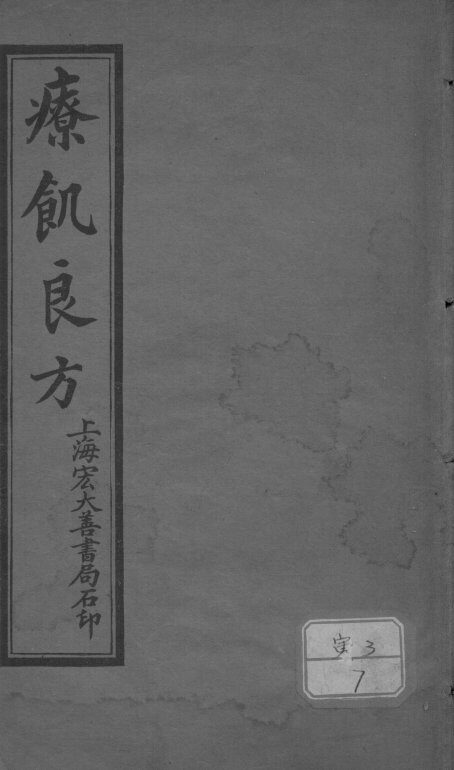 療飢良方
上海宏大善書局石印
3
7